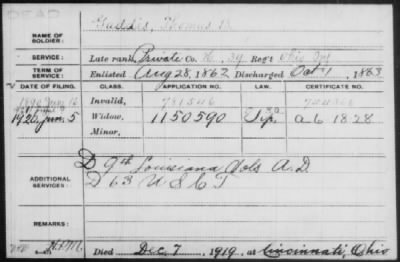 DEAD
Gaddis, Thomas B.
NAME OF SOLDIER:
SERVICE: Late rank, Private Co. K, 39 Reg't Ohio Inf
TERM OF SERVICE: Enlisted Aug 28, 1862 Discharged Oct 1, 1863
DATE OF FILING. CLASS. APPLICATION NO. LAW. CERTIFICATE NO.
1890 Invalid, 781546
1920, Jun. 5 Widow, 1150590 a 6 1828
Minor,
ADDITIONAL SERVICES:
D 9th Louisiana Vols A.D.
D 63 U S C T
REMARKS:
Died Dec. 7, 1919, at Cincinnati, Ohio